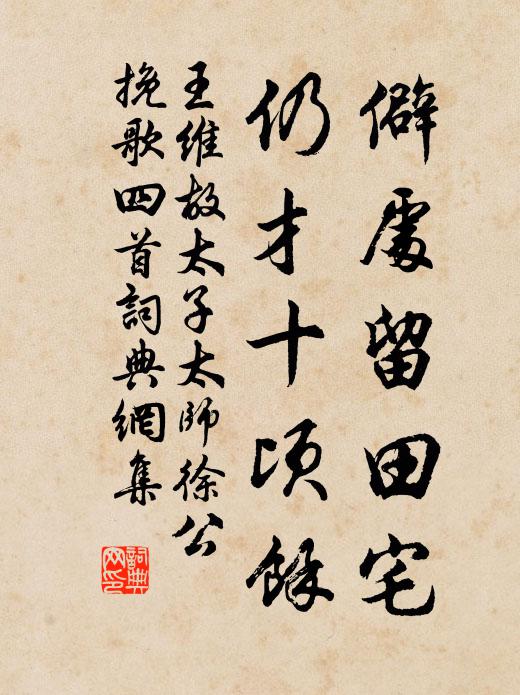 僻處留田宅
仍才十頃餘
王維故太子太師徐公
挽歌四首詞典網集
詞典网印